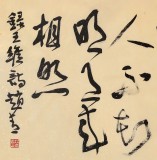 人不知
明月来
相照
録王維詩